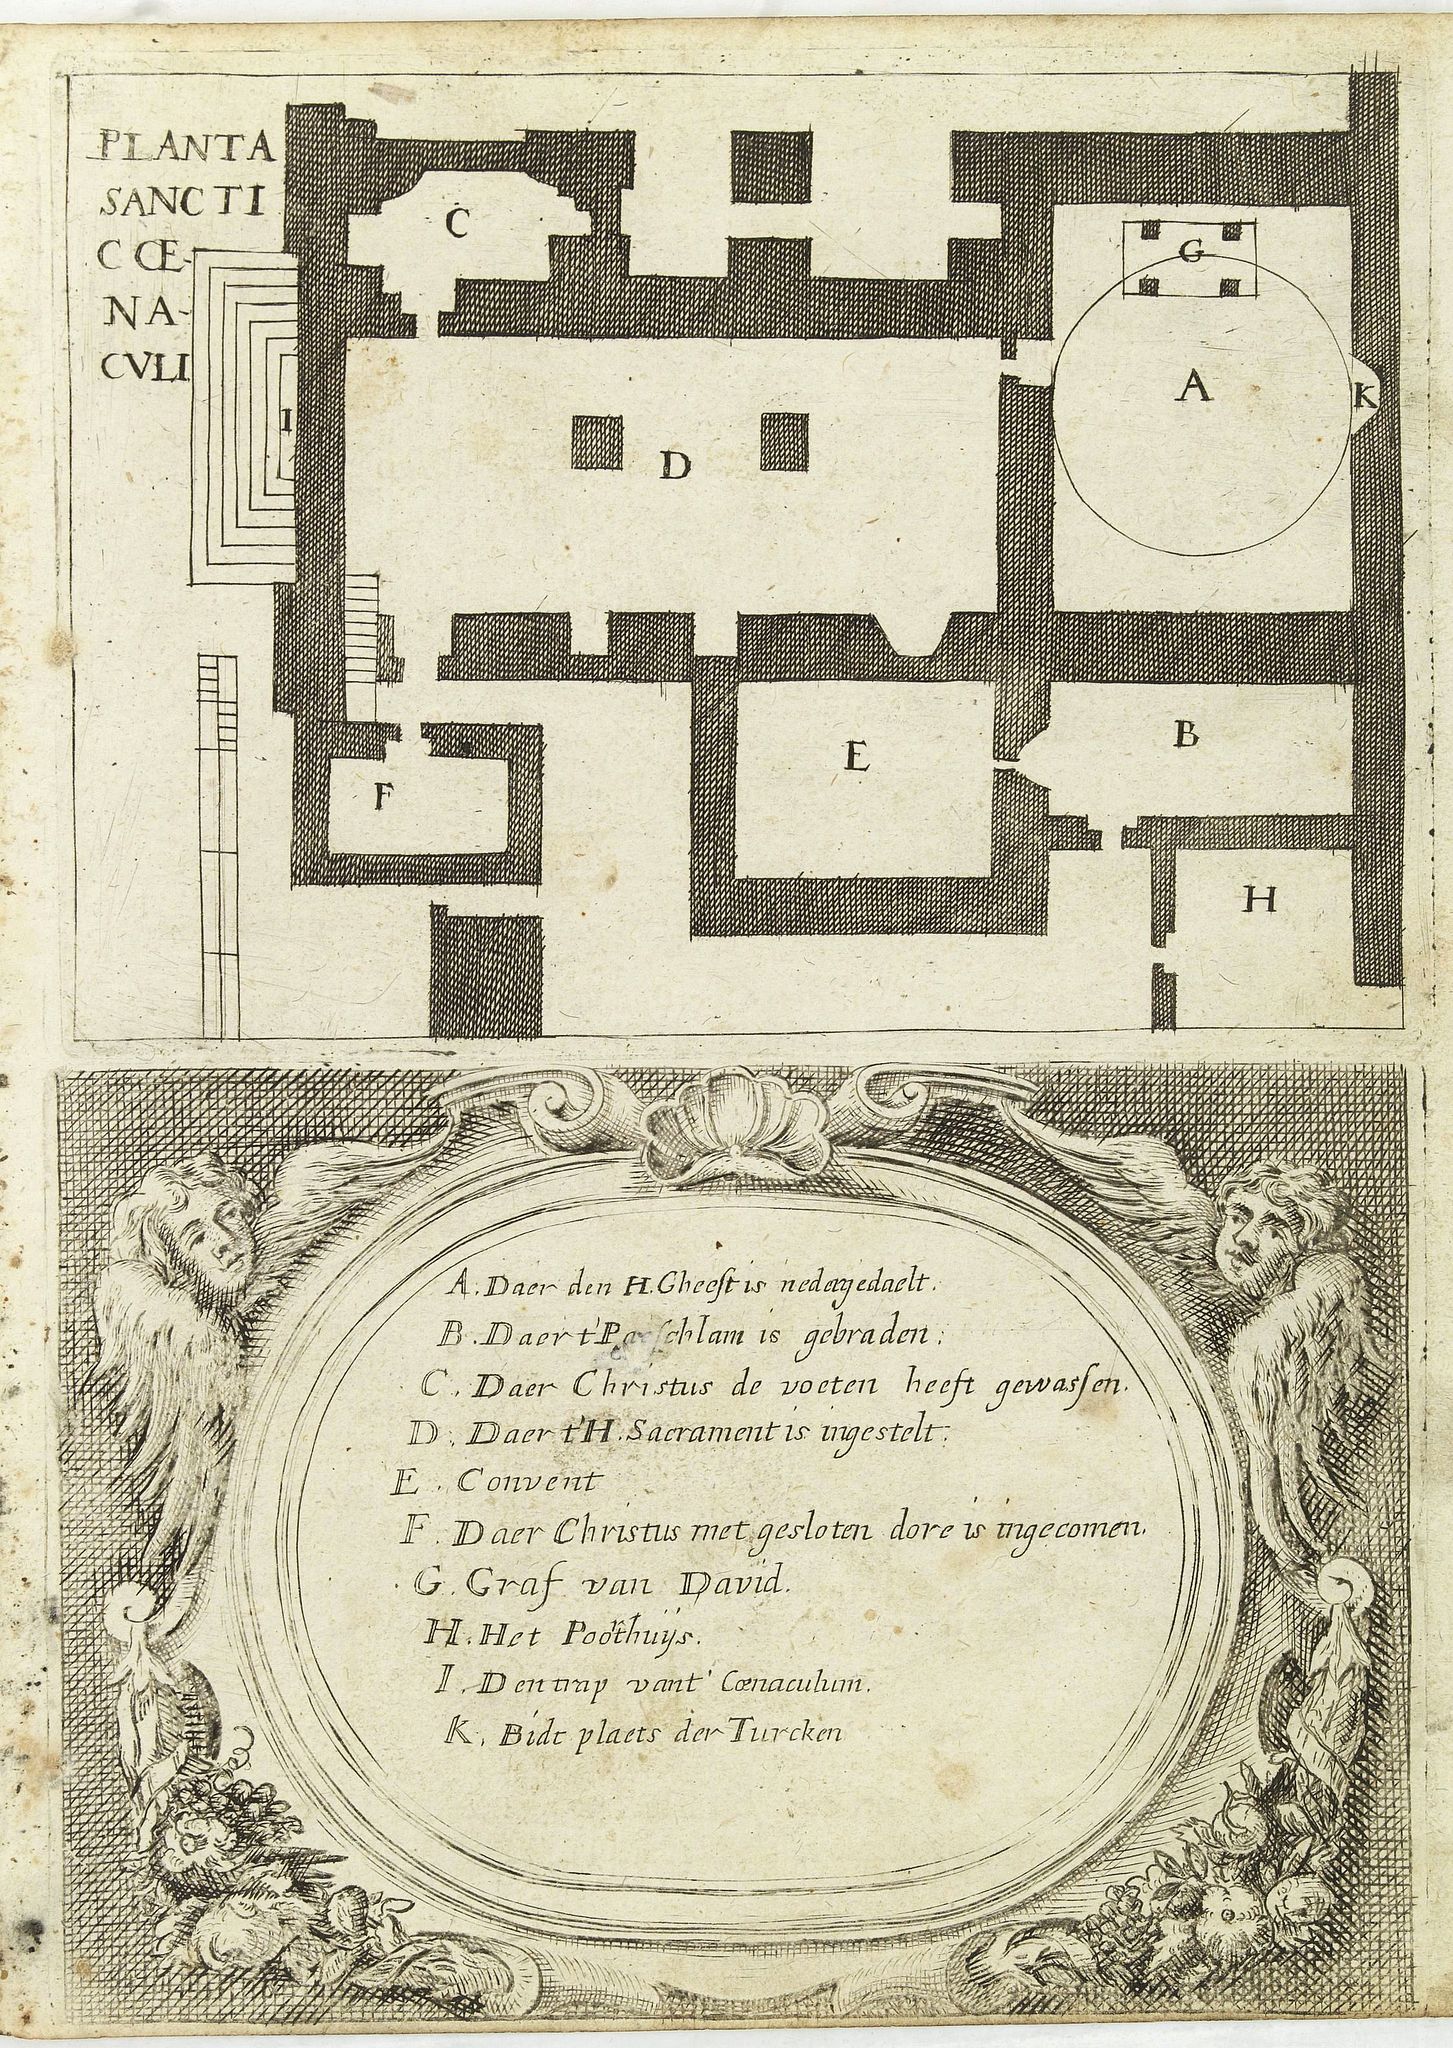 PLANTA
SANCTI
CŒ-
NA-
CVLI
C
G
A
K
I
D
E
B
F
H
A. Daer den H. Gheest is nedergedaelt.
B. Daer t'Paeschlam is gebraden:
C. Daer Christus de voeten heeft gewassen.
D. Daer t'H. Sacrament is ingestelt:
E. Convent
F. Daer Christus met gesloten dore is ingecomen.
G. Graf van David.
H. Het Poorthuijs.
I. Den trap vant' Cœnaculum.
K. Bidt plaets der Turcken